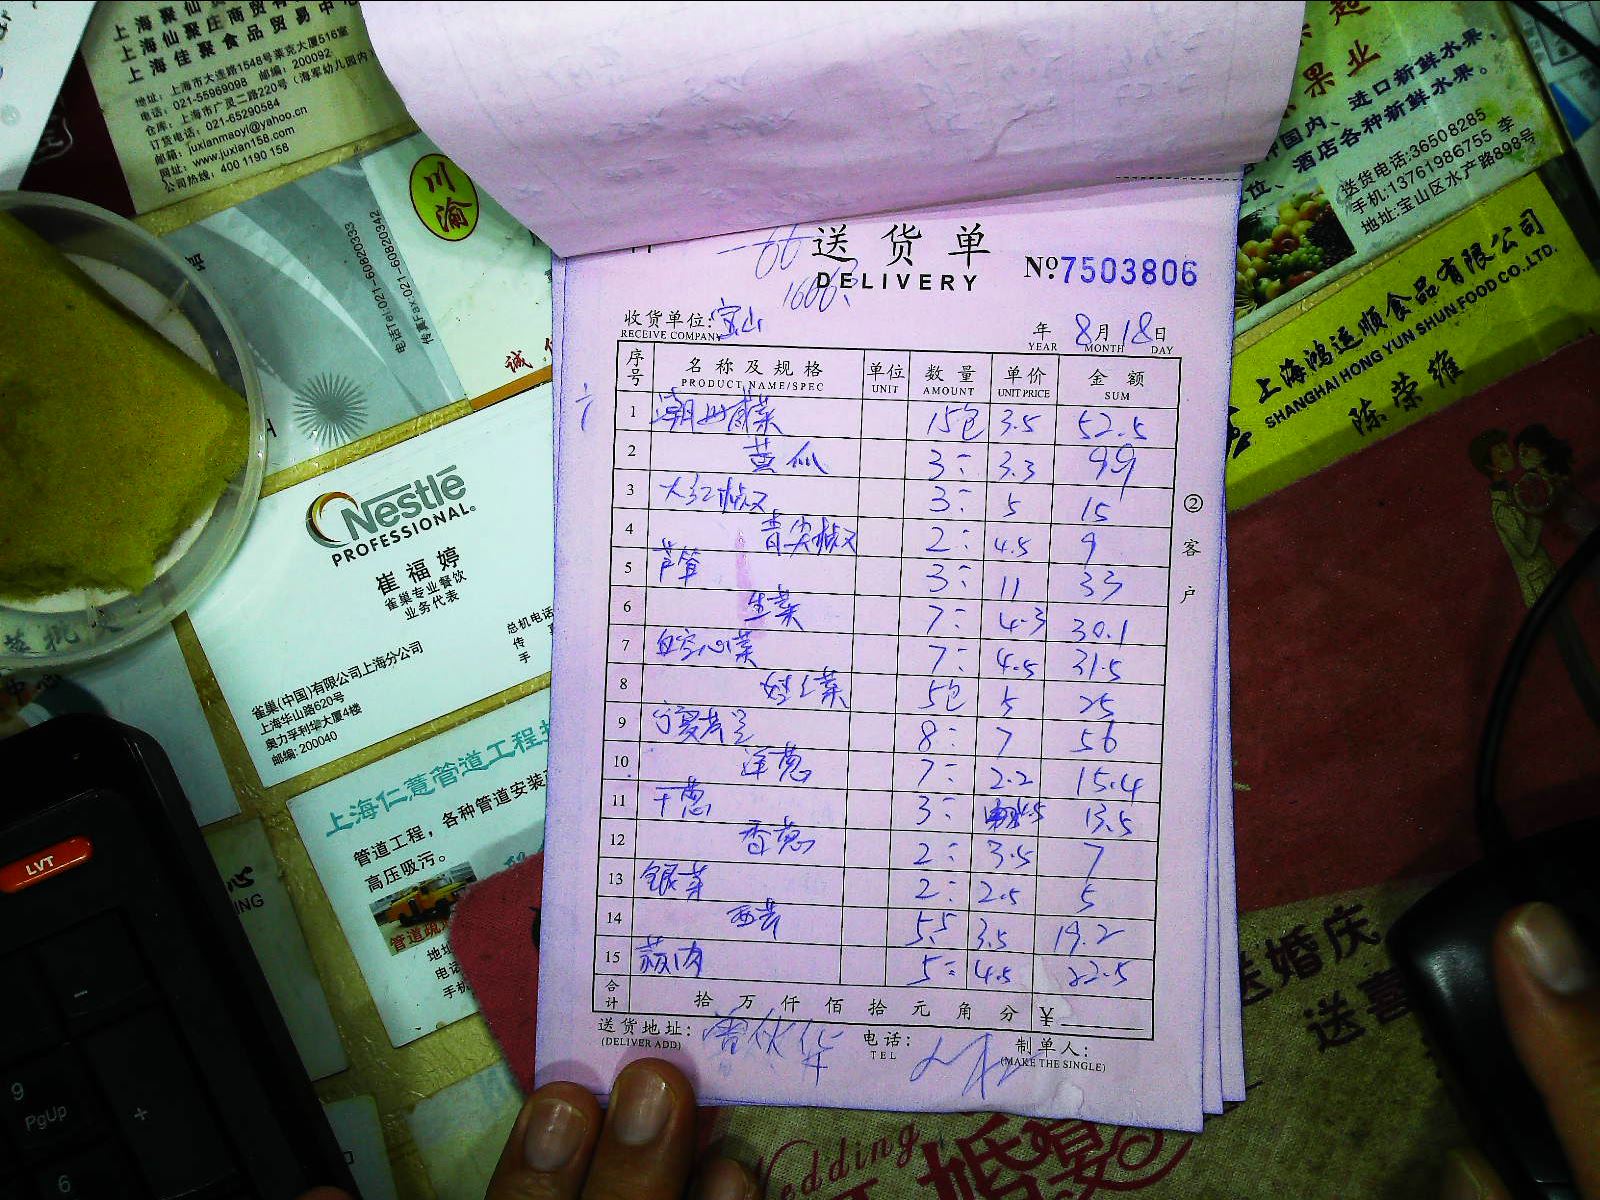 上海仙聚庄商贸有
上海佳聚食品贸易中心
地址：上海市大连路1548号莱克大厦516室
电话：021-55969098 邮编：200092
仓库：上海市广灵二路220号（海军幼儿园内）
订货电话：021-65290584
邮箱：juxianmaoyi@yahoo.cn
网址：www.juxian158.com
公司热线：400 1190 158
川渝
电话Tel:021-60820333
传真Fax:021-60820342
诚
果业
种国内、进口新鲜水果，
位、酒店各种新鲜水果。
送货电话:36508285
手机:13761986755 李
地址:宝山区水产路898号
上海鸿运顺食品有限公司
SHANGHAI HONG YUN SHUN FOOD CO.,LTD.
陈荣雍
Nestlé
PROFESSIONAL.
崔福婷
雀巢专业餐饮
业务代表
总机电话
传
手
雀巢(中国)有限公司上海分公司
上海华山路620号
奥力孚利华大厦4楼
邮编: 200040
上海仁薏管道工程
管道工程，各种管道安装
高压吸污。
管道疏
地址
电话
手机
LVT
9
PgUp
+
6
送货单
DELIVERY
No.7503806
收货单位: 宝山
RECEIVE COMPANY
年 8月18日
YEAR MONTH DAY
序号 名称及规格 单位 数量 单价 金额
PRODUCT NAME/SPEC UNIT AMOUNT UNIT PRICE SUM
1 潮州咸菜 15包 3.5 52.5
2 黄瓜 3: 3.3 99
3 大红椒 3: 5 15
4 青尖椒 2: 4.5 9
5 芦笋 3: 11 33
6 生菜 7: 4.3 30.1
7 空心菜 7: 4.5 31.5
8 娃娃菜 5包 5 25
9 宁夏芥兰 8: 7 56
10 洋葱 7: 2.2 15.4
11 干葱 3: 4.5 13.5
12 香葱 2: 3.5 7
13 银芽 2: 2.5 5
14 西芹 5.5 3.5 19.2
15 蒜肉 5: 4.5 22.5
合计 拾 万 仟 佰 拾 元 角 分 ¥
送货地址:
(DELIVER ADD)
电话:
TEL
制单人:
(MAKE THE SINGLE)
②客户
送婚庆
送喜
Wedding
婚宴